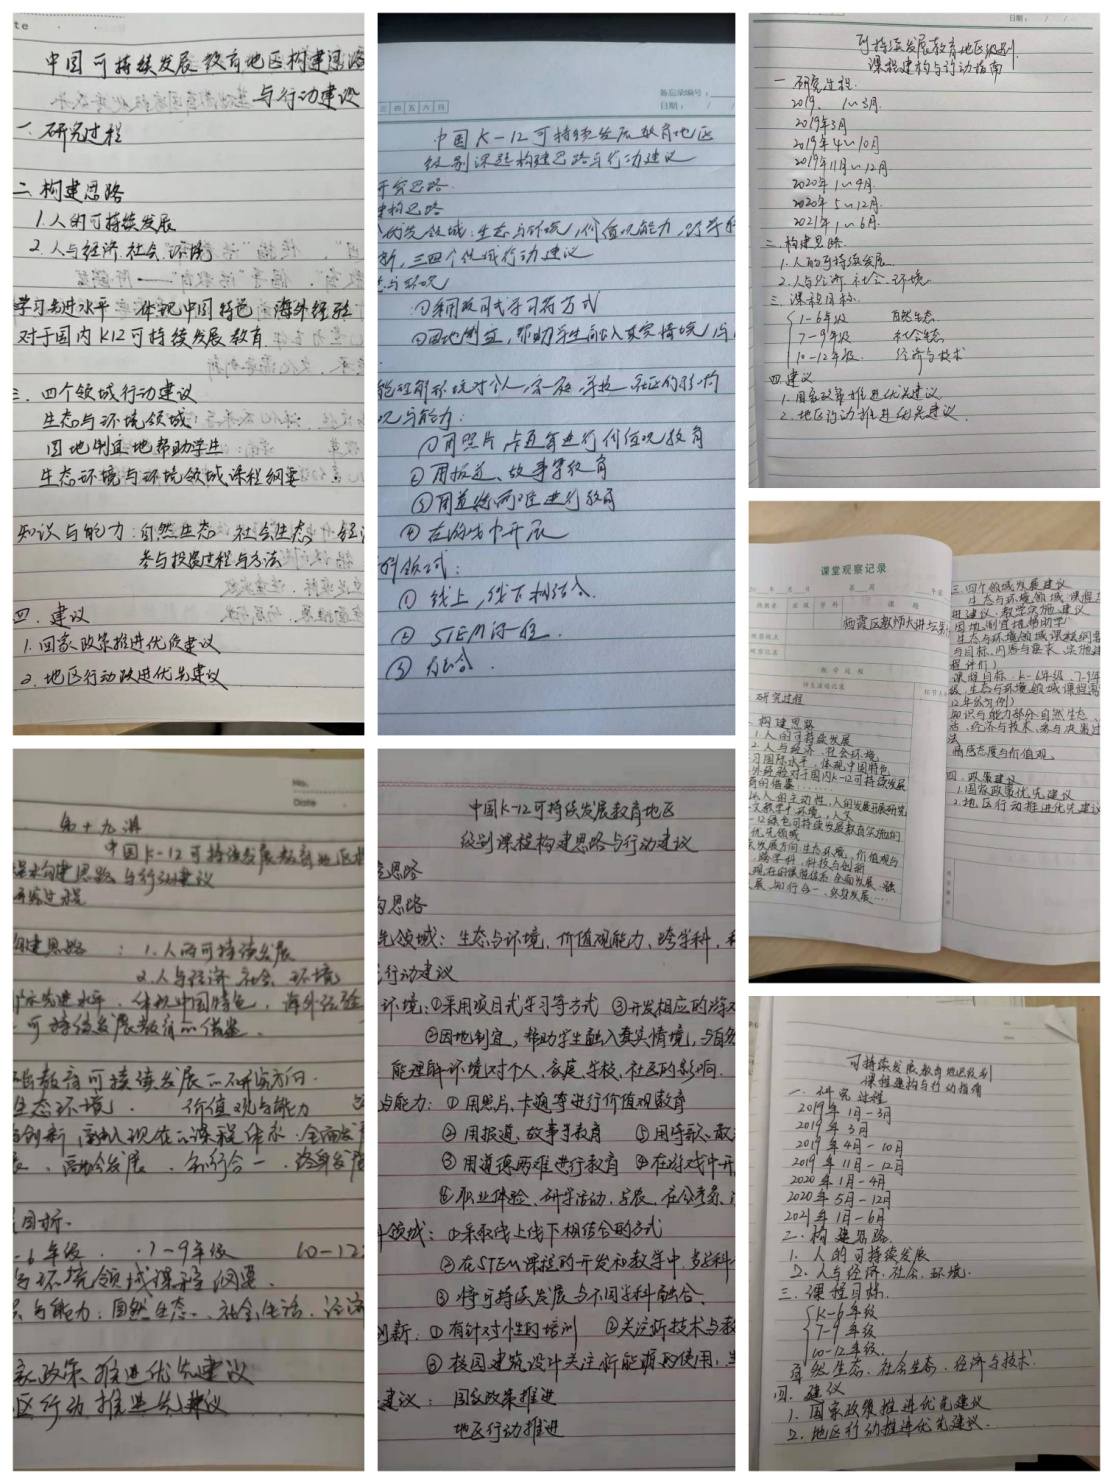 te
中国可持续发展教育地区构建思路
与行动建议
一. 研究过程
二. 构建思路
1. 人的可持续发展
2. 人与经济.社会.环境
学习先进水平 体现中国特色 海外经验
对于国内K12可持续发展教育
三. 四个领域行动建议
生态与环境领域
因地制宜地帮助学生
生态环境与环境领域课程纲要
知识与能力:自然生态、社会生态、经济
参与投入过程与方法
四. 建议
1. 国家政策推进优先建议
2. 地区行动跃进优先建议
三 四 五 六 日
备忘录编号:
日期: / /
中国K-12可持续发展教育地区
级别课程构建思路与行动建议
开究思路
构思路
先领域:生态与环境,价值观能力,跨学科
新,三四个领域行动建议
态与环境
①采用项目式学习等方式
②因地制宜,帮助学生融入真实情境,与
能理解环境对个人,家庭,学校,社区的影响
观与能力:
①用照片,卡通等进行价值观教育
②用报道、故事等教育
③用道德两难进行教育
④在游戏中开展
科领域:
①线上,线下相结合.
②STEM课程.
③融合.
日期: / /
可持续发展教育地区级别
课程建构与行动指南
一. 研究过程
2019. 1~3月.
2019年3月
2019年4~10月
2019年11月~12月
2020年1~4月.
2020年5~12月.
2021年1~6月.
二. 构建思路.
1. 人的可持续发展.
2. 人与经济.社会.环境.
三. 课程目标.
1-6年级 自然生态.
7-9年级 社会生态
10-12年级. 经济与技术
四. 建议
1. 国家政策推进优先建议
2. 地区行动推进优先建议.
课堂观察记录
年 月 日 第 周
班级 学科 课题
栖霞区教师大讲坛
教学过程
研究过程
构建思路
1. 人的可持续发展
2. 人与经济.社会环境
习国际水平,体现中国特色
外经验对于国内K-12可持续发展
育的借鉴......
从人的主动性,人的发展开展研究
环境,人文
-12绿色可持续发展教育实施的
优先领域
发展方向:生态环境,价值观与
跨学科,科技与创新
现在的课程体系.全面发展.融
展.知行合一.终身发展....
三. 四个领域发展建议
生态与环境领域(课程
进建议.教学实施建议
因地制宜地帮助学
生态与环境领域课程纲要
与目标.内容与要求.实施建
程评价)
课程目标: K-6年级.7-9年
级.生态与环境领域课程
12年级为例)
知识与能力部分自然生态.
活.经济与技术.参与决策过
法
情感态度与价值观.
四. 政策建议
1. 国家政策优先建议
2. 地区行动推进优先建议
No.
Date
第十九讲
中国K-12可持续发展教育地区级
课程构建思路与行动建议
研究过程
构建思路: 1. 人的可持续发展
2. 人与经济 社会 环境
国际先进水平.体现中国特色.海外经验
可持续发展教育的借鉴.
教育可持续发展的研究方向.
生态环境. 价值观与能力
与创新 融入现在的课程体系.全面发展
展.融合发展.知行合一.终身发展
目标.
-6年级. .7-9年级 10-12
与环境领域课程纲要.
识与能力:自然生态.社会生活.经济
家政策推进优先建议
区行动推进优先建议
中国K-12可持续发展教育地区
级别课程构建思路与行动建议
究思路
构思路
先领域: 生态与环境,价值观能力、跨学科,科
行动建议
环境:①采用项目式学习等方式 ③开发相应的游戏
②因地制宜,帮助学生融入真实情境,与自然
能理解环境对个人,家庭,学校,社区的影响.
与能力: ①用照片,卡通等进行价值观教育
②用报道,故事等教育 ⑤用诗歌、戏
③用道德两难进行教育 ④在游戏中开
⑥职业体验、研学活动,
科领域: ①采取线上线下相结合的方式
②在STEM课程的开发和教学中,跨学科
③将可持续发展与不同学科融合.
创新: ①有针对性的培训 ②关注新技术与教
③校园建筑设计关注新能源的使用,生
建议: 国家政策推进
地区行动推进
可持续发展教育地区级别
课程建构与行动指南
一. 研究过程
2019年1月-3月
2019年3月
2019年4月-10月
2019年11月-12月
2020年1月-4月
2020年5月-12月
2021年1月-6月
二. 构建思路.
1. 人的可持续发展
2. 人与经济.社会.环境.
三. 课程目标.
K-6年级
7-9年级
10-12年级.
自然生态、社会生态、经济与技术.
四. 建议
1. 国家政策推进优先建议
2. 地区行动推进优先建议.